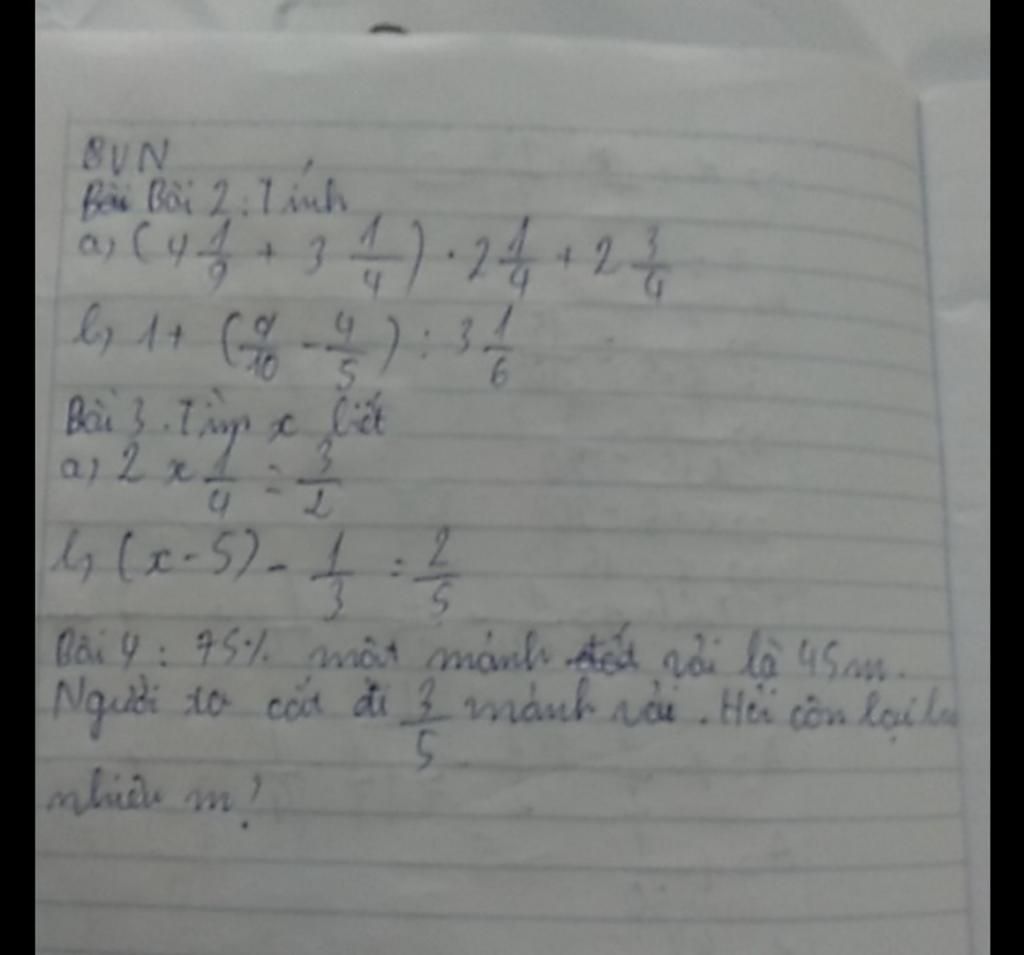 BVN
Bài Bài 2: Tính
a, (4 1/9 + 3 1/4) · 2 1/4 + 2 3/4
b, 1 + (9/10 - 4/5) : 3 1/6
Bài 3. Tìm x biết
a, 2 x 1/4 = 3/2
b, (x - 5) - 1/3 = 2/5
Bài 4: 75% một mảnh vải là 45m.
Người ta cắt đi 3/5 mảnh vải. Hỏi còn lại
nhiêu m?